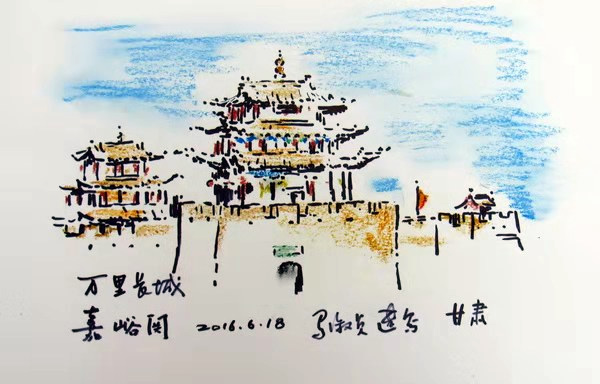 万里长城
嘉峪关 2016.6.18 马淑贞速写 甘肃